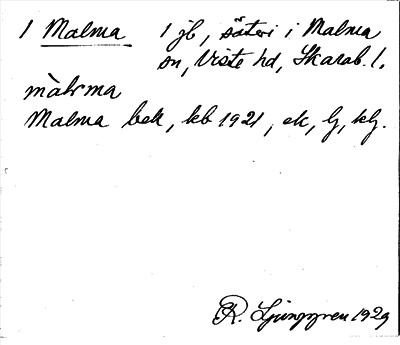 1 Malma 1 jb, säteri i Malma
sn, Viste hd, Skarab. l.
màlma
Malma bek, kb 1921, ek, lj, klj.
R. Ljunggren 1929